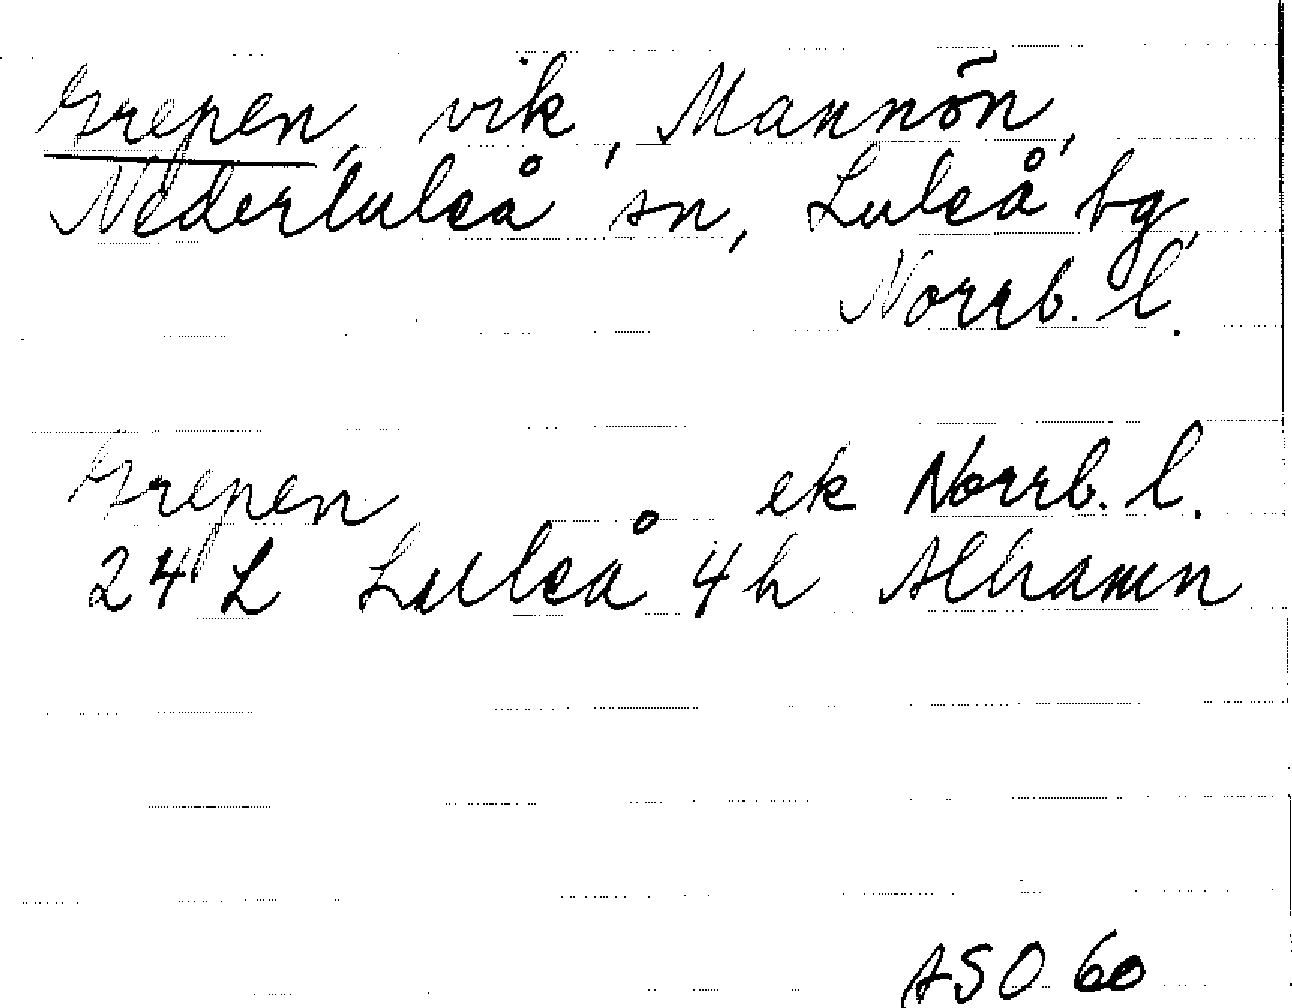 Grepen, vik, Mannön,
Nederluleå sn, Luleå bg,
Norrb. l.
Grepen ek Norrb. l.
24 L Luleå 4 h Alhamn
ASO 60